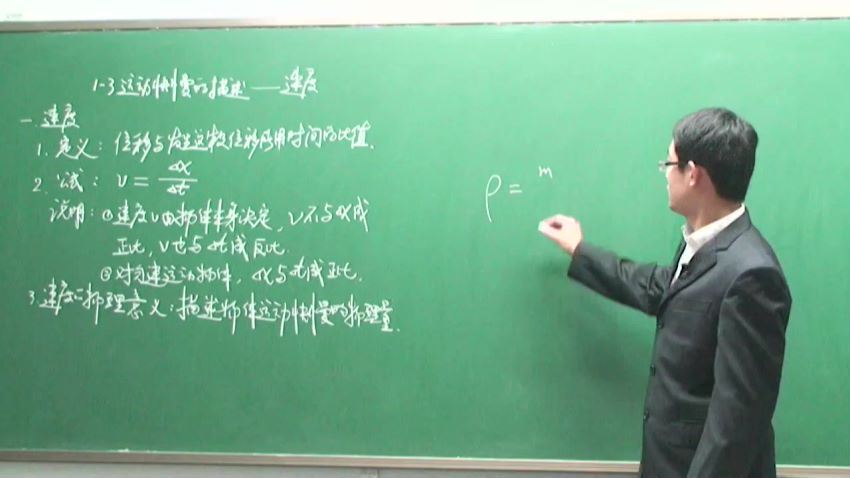 1-3 运动快慢的描述——速度
一. 速度
1. 定义: 位移与发生这段位移所用时间的比值.
2. 公式: v = Δx/Δt
说明: ①速度v由物体本身决定, v不与Δx成
正比, v也与Δt成反比.
②对匀速运动物体, Δx与Δt成正比.
3. 速度的物理意义: 描述物体运动快慢的物理量.
ρ = m